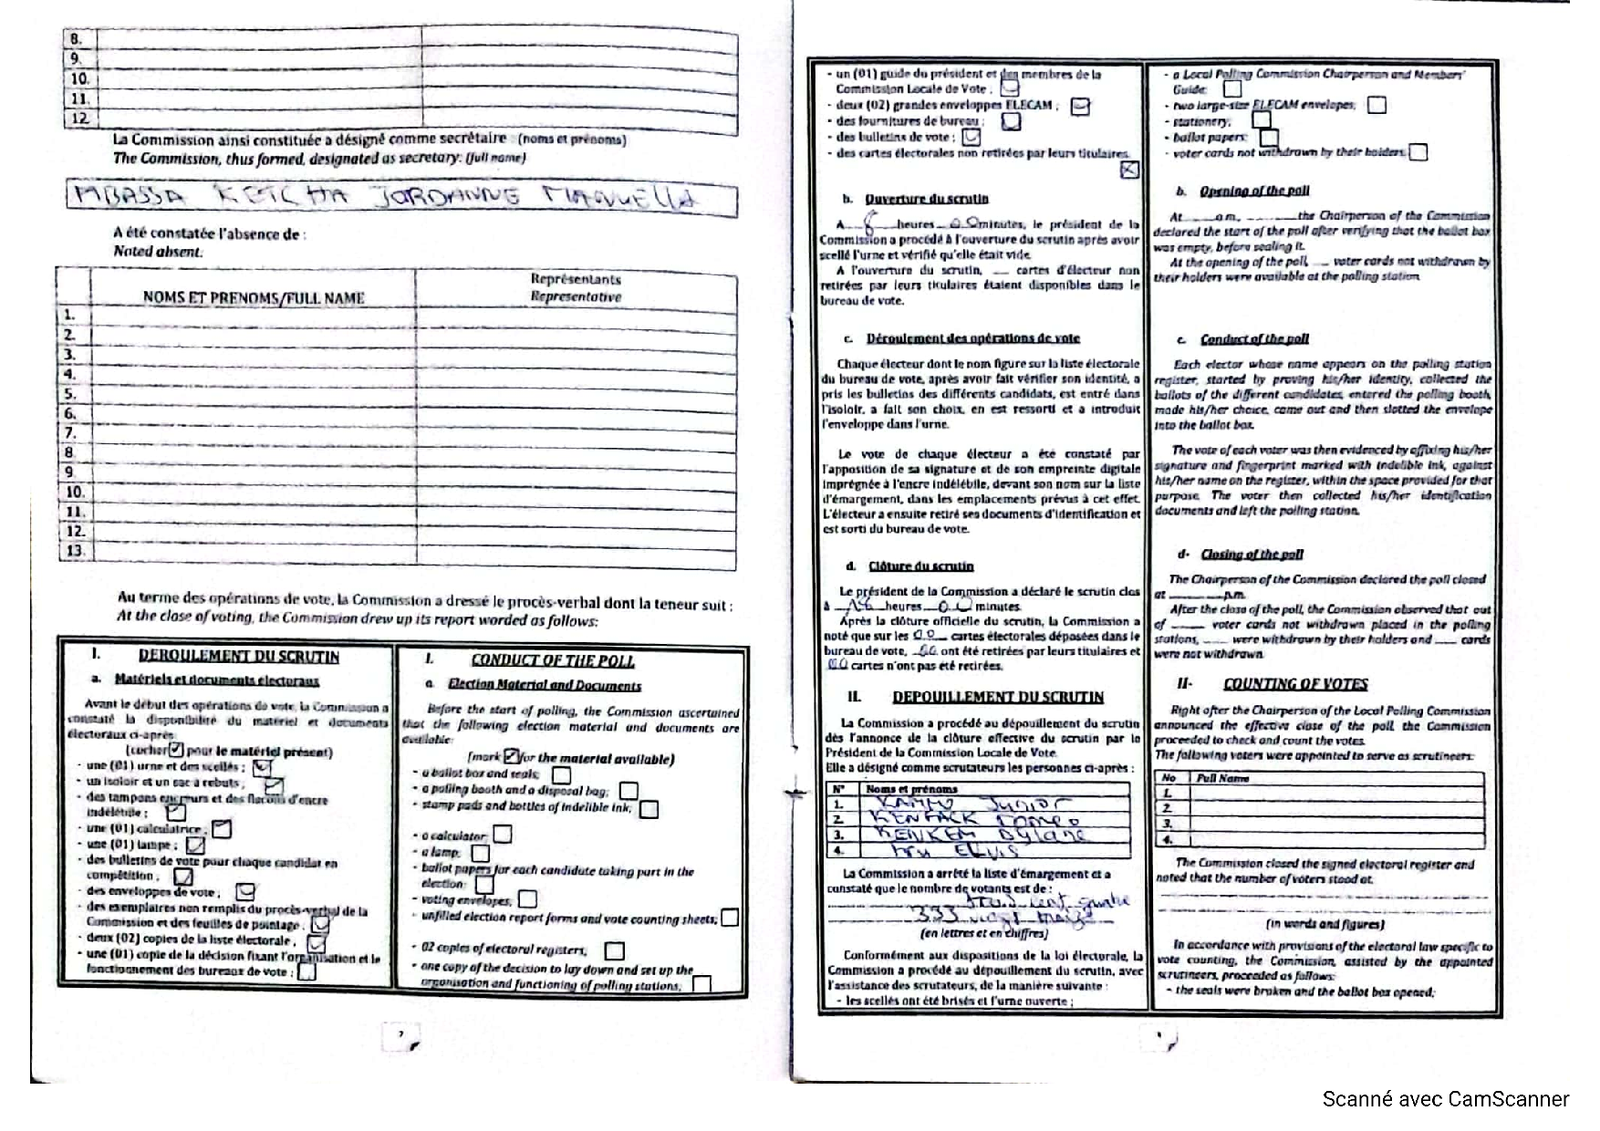 8.
9.
10.
11.
12.
La Commission ainsi constituée a désigné comme secrétaire : (noms et prénoms)
The Commission, thus formed, designated as secretary: (full name)
MBASSA KETCHA JORDANNE MANUELLA
A été constatée l'absence de :
Noted absent:
NOMS ET PRENOMS/FULL NAME
Représentants
Representative
1.
2.
3.
4.
5.
6.
7.
8.
9.
10.
11.
12.
13.
Au terme des opérations de vote, la Commission a dressé le procès-verbal dont la teneur suit :
At the close of voting, the Commission drew up its report worded as follows:
I. DEROULEMENT DU SCRUTIN
a. Matériels et documents électoraux
Avant le début des opérations de vote, la Commission a
constaté la disponibilité du matériel et documents
électoraux ci-après
(cocher pour le matériel présent)
- une (01) urne et des scellés ;
- un isoloir et un sac à rebuts ;
- des tampons encreurs et des flacons d'encre
indélébile ;
- une (01) calculatrice ;
- une (01) lampe ;
- des bulletins de vote pour chaque candidat en
compétition ;
- des enveloppes de vote ;
- des exemplaires non remplis du procès-verbal de la
Commission et des feuilles de pointage ;
- deux (02) copies de la liste électorale ,
- une (01) copie de la décision fixant l'organisation et le
fonctionnement des bureaux de vote ;
I. CONDUCT OF THE POLL
a. Election Material and Documents
Before the start of polling, the Commission ascertained
that the following election material and documents are
available:
(mark for the material available)
- a ballot box and seals;
- a polling booth and a disposal bag;
- stamp pads and bottles of indelible ink;
- a calculator;
- a lamp;
- ballot papers for each candidate taking part in the
election;
- voting envelopes;
- unfilled election report forms and vote counting sheets;
- 02 copies of electoral registers;
- one copy of the decision to lay down and set up the
organisation and functioning of polling stations;
2
- un (01) guide du président et des membres de la
Commission Locale de Vote ;
- deux (02) grandes enveloppes ELECAM ;
- des fournitures de bureau ;
- des bulletins de vote ;
- des cartes électorales non retirées par leurs titulaires.
b. Ouverture du scrutin
A 8 heures 00 minutes, le président de la
Commission a procédé à l'ouverture du scrutin après avoir
scellé l'urne et vérifié qu'elle était vide.
A l'ouverture du scrutin, ___ cartes d'électeur non
retirées par leurs titulaires étaient disponibles dans le
bureau de vote.
c. Déroulement des opérations de vote
Chaque électeur dont le nom figure sur la liste électorale
du bureau de vote, après avoir fait vérifier son identité, a
pris les bulletins des différents candidats, est entré dans
l'isoloir, a fait son choix, en est ressorti et a introduit
l'enveloppe dans l'urne.
Le vote de chaque électeur a été constaté par
l'apposition de sa signature et de son empreinte digitale
imprégnée à l'encre indélébile, devant son nom sur la liste
d'émargement, dans les emplacements prévus à cet effet.
L'électeur a ensuite retiré ses documents d'identification et
est sorti du bureau de vote.
d. Clôture du scrutin
Le président de la Commission a déclaré le scrutin clos
à heures 00 minutes.
Après la clôture officielle du scrutin, la Commission a
noté que sur les 00 cartes électorales déposées dans le
bureau de vote, 00 ont été retirées par leurs titulaires et
00 cartes n'ont pas été retirées.
II. DEPOUILLEMENT DU SCRUTIN
La Commission a procédé au dépouillement du scrutin
dès l'annonce de la clôture effective du scrutin par le
Président de la Commission Locale de Vote.
Elle a désigné comme scrutateurs les personnes ci-après :
N° Noms et prénoms
1. Junior
2. KENFACK Romeo
3. KENKEM Dylane
4. ELVIS
La Commission a arrêté la liste d'émargement et a
constaté que le nombre de votants est de :
cent
333
(en lettres et en chiffres)
Conformément aux dispositions de la loi électorale, la
Commission a procédé au dépouillement du scrutin, avec
l'assistance des scrutateurs, de la manière suivante :
- les scellés ont été brisés et l'urne ouverte ;
- a Local Polling Commission Chairperson and Members'
Guide;
- two large-size ELECAM envelopes;
- stationery;
- ballot papers;
- voter cards not withdrawn by their holders.
b. Opening of the poll
At ___ a.m, ___ the Chairperson of the Commission
declared the start of the poll after verifying that the ballot box
was empty, before sealing it.
At the opening of the poll, ___ voter cards not withdrawn by
their holders were available at the polling station.
c. Conduct of the poll
Each elector whose name appears on the polling station
register, started by proving his/her identity, collected the
ballots of the different candidates, entered the polling booth,
made his/her choice, came out and then slotted the envelope
into the ballot box.
The vote of each voter was then evidenced by affixing his/her
signature and fingerprint marked with indelible ink, against
his/her name on the register, within the space provided for that
purpose. The voter then collected his/her identification
documents and left the polling station.
d- Closing of the poll
The Chairperson of the Commission declared the poll closed
at ___ p.m.
After the close of the poll, the Commission observed that out
of ___ voter cards not withdrawn placed in the polling
stations, ___ were withdrawn by their holders and ___ cards
were not withdrawn.
II- COUNTING OF VOTES
Right after the Chairperson of the Local Polling Commission
announced the effective close of the poll, the Commission
proceeded to check and count the votes.
The following voters were appointed to serve as scrutineers:
No Full Name
1.
2.
3.
4.
The Commission closed the signed electoral register and
noted that the number of voters stood at.
(in words and figures)
In accordance with provisions of the electoral law specific to
vote counting, the Commission, assisted by the appointed
scrutineers, proceeded as follows:
- the seals were broken and the ballot box opened;
Scanné avec CamScanner